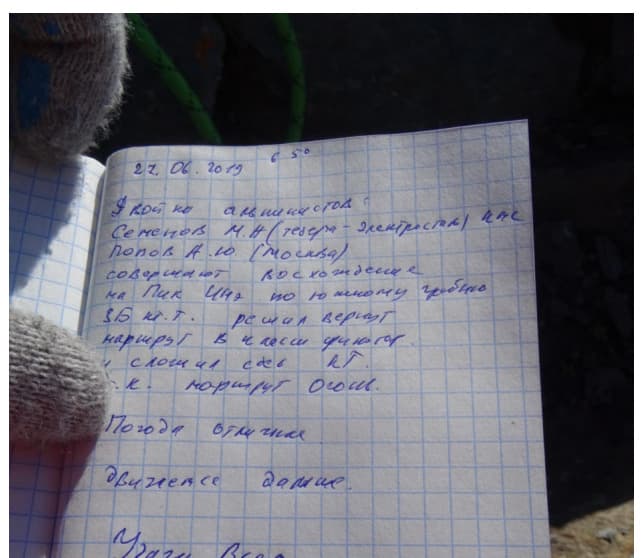 27.06.2019 6 50
Двойка альпинистов:
Семенов М.А (Тверь-Электросталь)
Попов А.Ю. (Москва)
совершают восхождение
на Пик по южному гребню
3Б к.т. решил вернут
маршрут в класси
и сложил КТ.
т.к. маршрут огонь.
Погода отличная
движемся дальше.
Удачи Всем